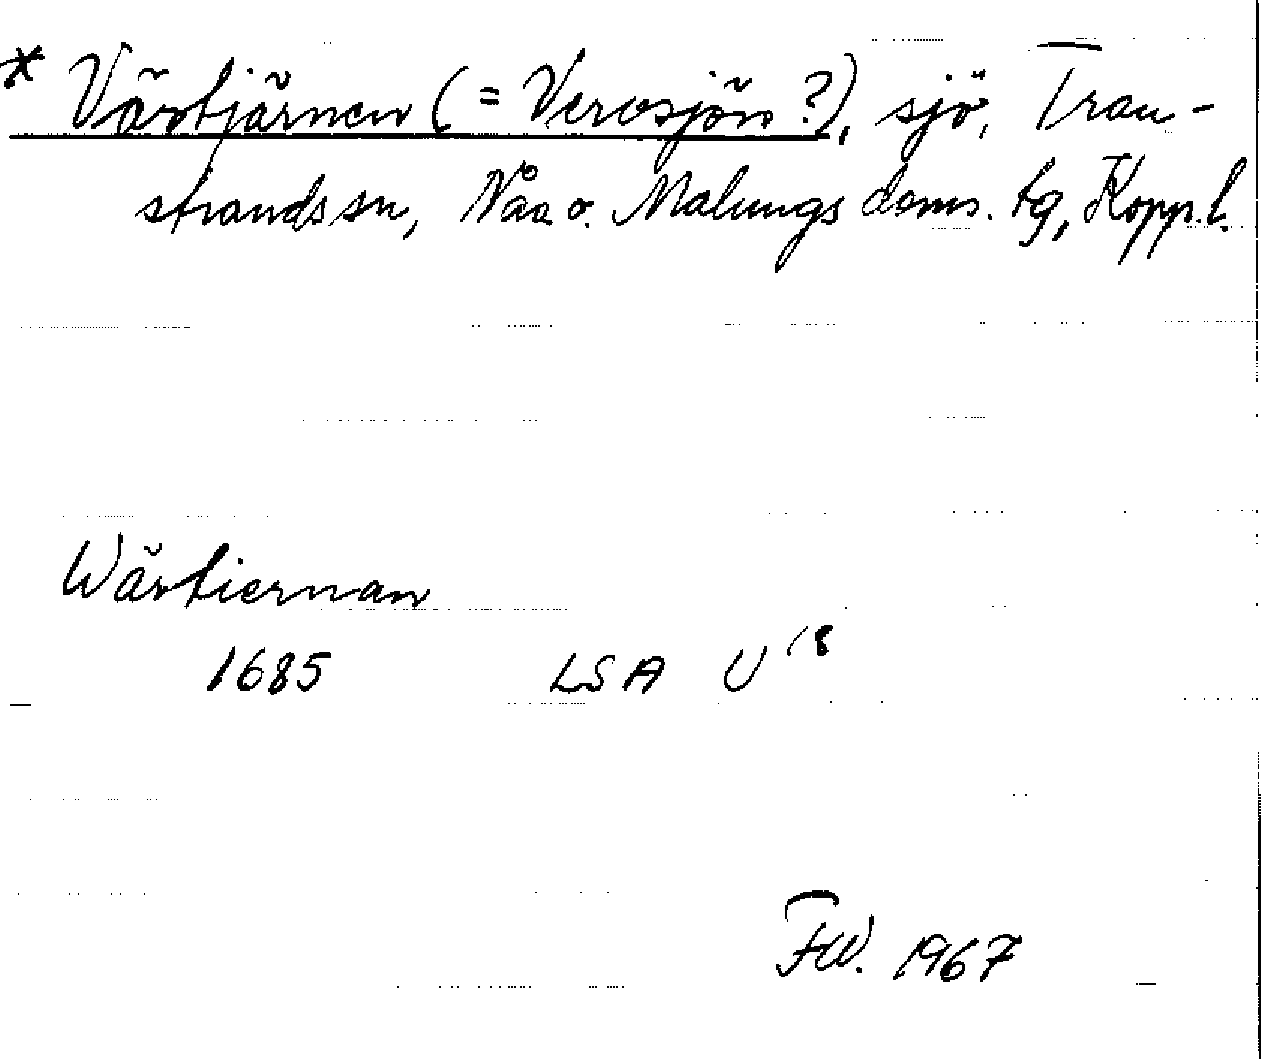 * Värtjärnen (= Verosjön ?), sjö, Tran-
strands sn, Nås o. Malungs doms. tg, Kopp. l.
Wärtiernan
1685 LSA U 18
F.W. 1967